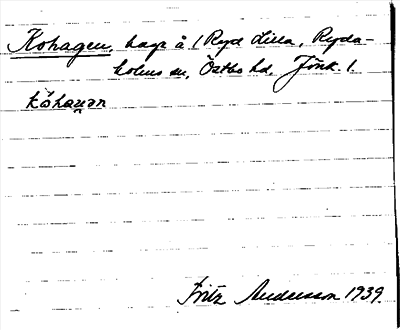 Kohagen, hage å 1 Ryd Lilla, Ryda-
holms sn, Östbo hd, Jönk. l.
kóhaɰən
Fritz Andersson 1939.